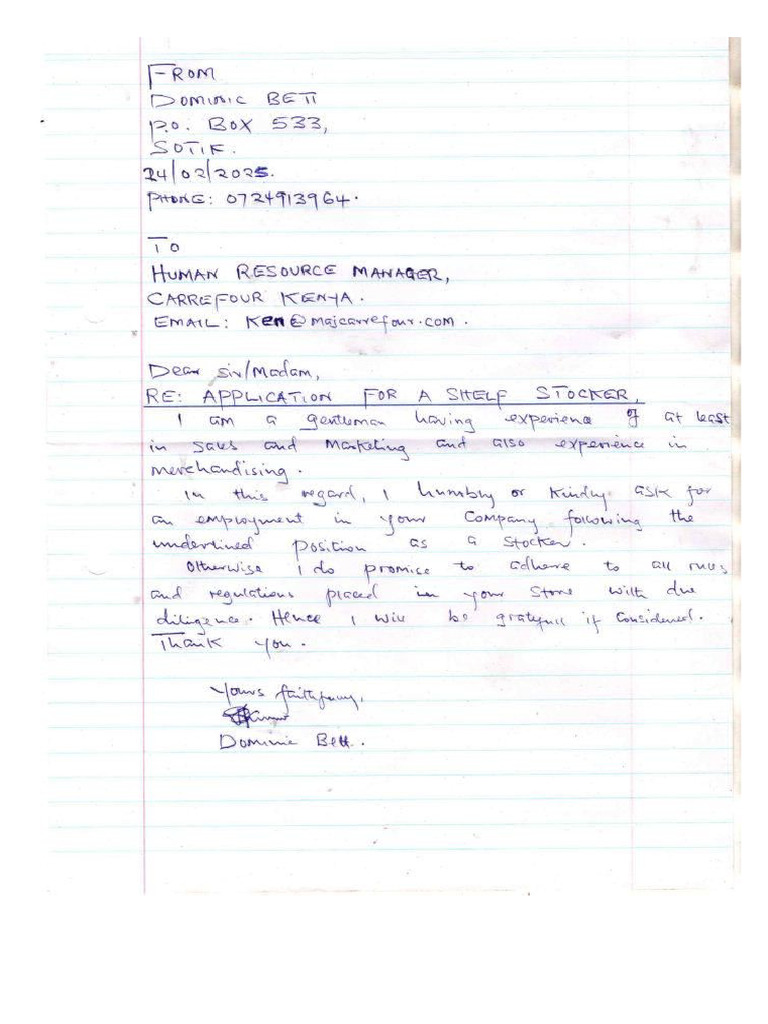 FROM
DOMINIC BETT
P.O. BOX 533,
SOTIK.
24/02/2025.
PHONE: 0724913964.
TO
HUMAN RESOURCE MANAGER,
CARREFOUR KENYA.
EMAIL: Ken@majcarrefour.com.
Dear Sir/Madam,
RE: APPLICATION FOR A SHELF STOCKER,
I am a gentleman having experience of at least
in sales and Marketing and also experience in
merchandising.
In this regard, I humbly or Kindly ask for
an employment in your Company following the
underlined position as a stocker.
Otherwise I do promise to adhere to all rules
and regulations placed in your store with due
diligence. Hence I will be gratefull if Considered.
Thank you.
Yours faithfully,
Dominic Bett.